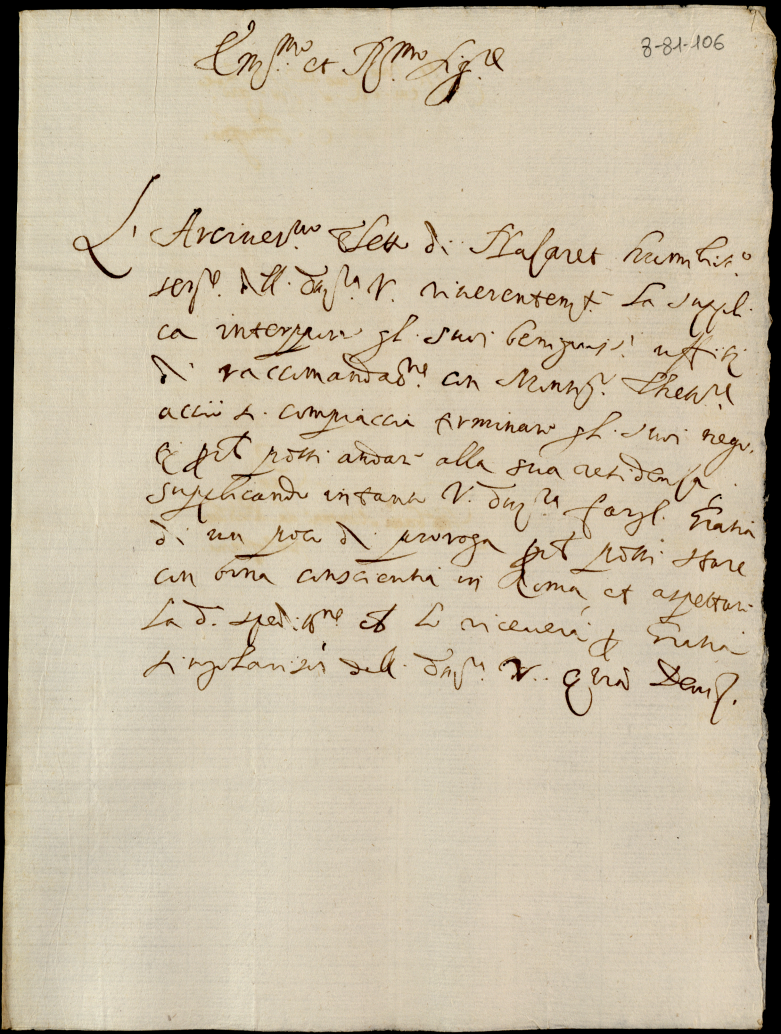 8-81-106
Em.mo et R.mo Sig.re
L'Arcives.vo Eletto di Nasaret humiliss.o
ser.re dell' Em.za V. riverentem.te la suppli-
ca interporre gl' suoi benigniss.i uffitij
di raccomandat.ne con Monsig.r Thes.re
acciò si compiaccia terminare gl' suoi nego-
tij possi andar alla sua residenza
supplicando intanto V. Em.za fargl' gratia
di un poco di proroga possi stare
con bona conscientia in Roma, et aspettar
la d.a sped.ne ch lo riceverà p gratia
singolariss.a dell' Em.za V. quam Deus.